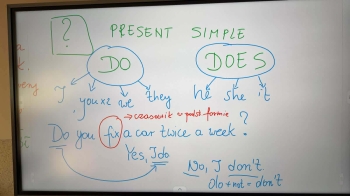 ?
PRESENT SIMPLE
DO DOES
I, you x2 we they he she it
→ czasownik w podst formie
Do you fix a car twice a week?
Yes, I do
No, I don't
do + not = don't